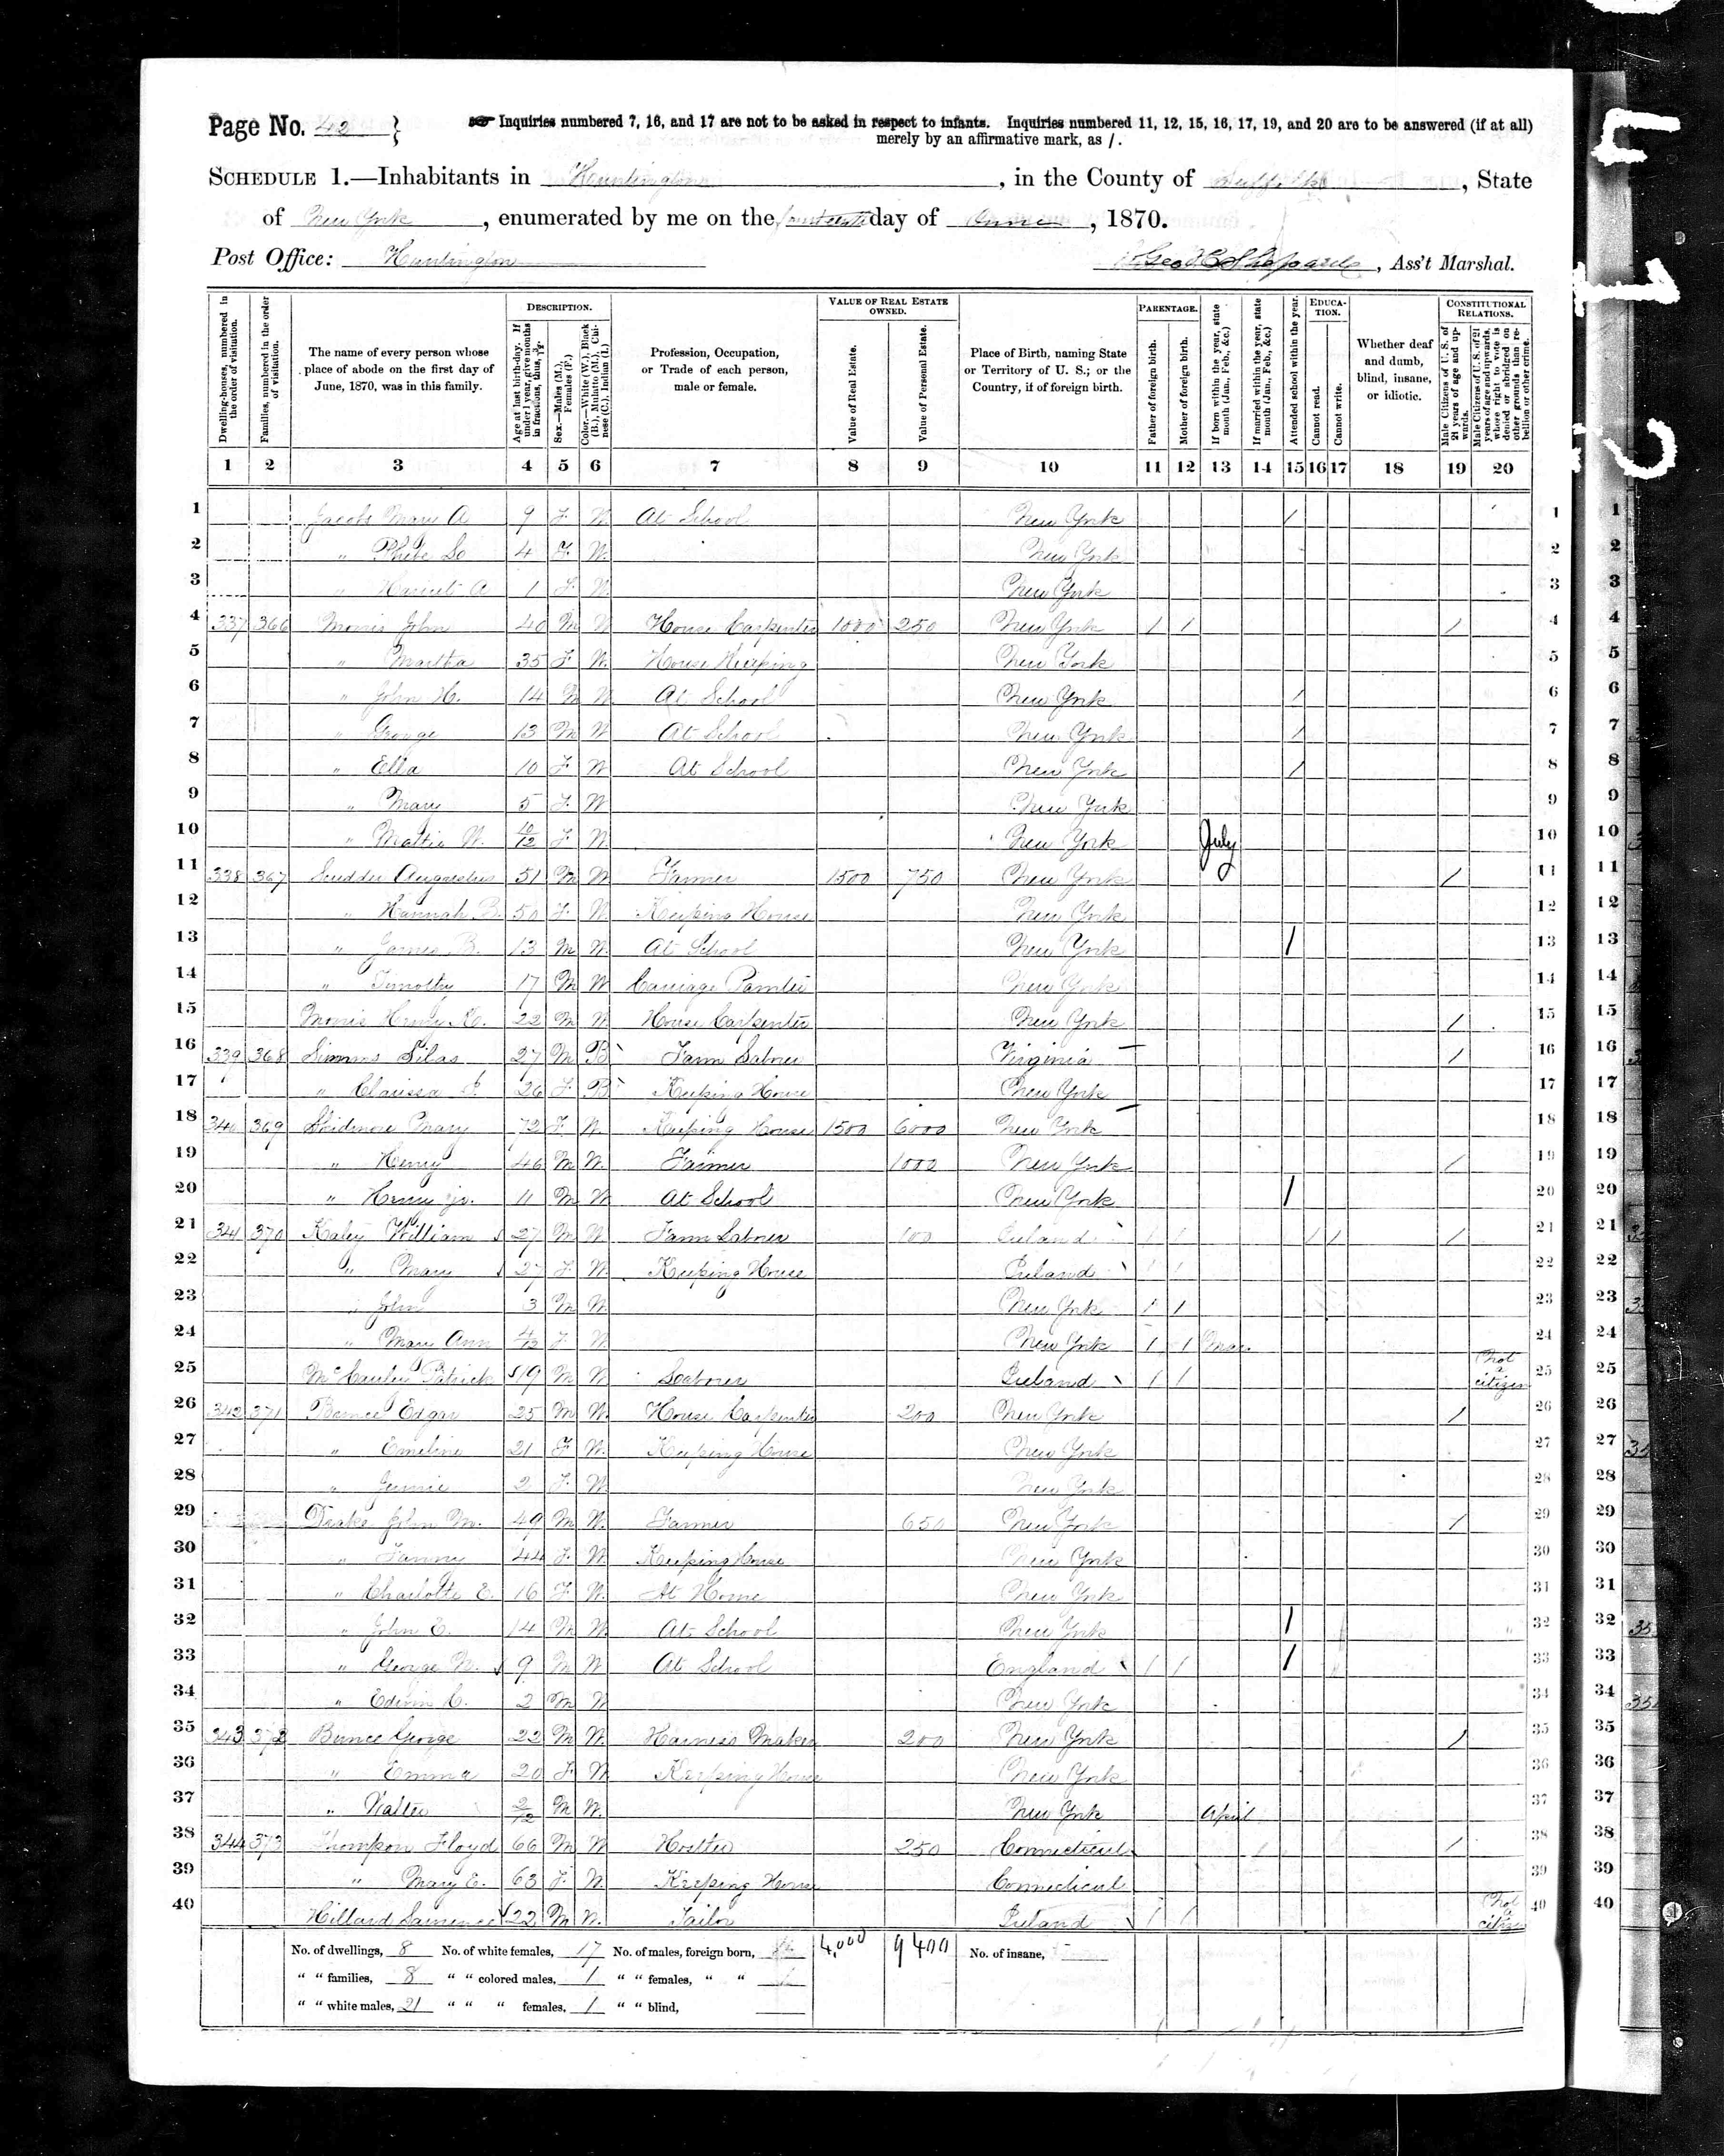 Page No. 42 }
Inquiries numbered 7, 16, and 17 are not to be asked in respect to infants. Inquiries numbered 11, 12, 15, 16, 17, 19, and 20 are to be answered (if at all)
merely by an affirmative mark, as /.
SCHEDULE 1.—Inhabitants in Huntington, in the County of Suffolk, State
of New York, enumerated by me on the fourteenth day of June, 1870.
Post Office: Huntington
Geo C Shepard, Ass't Marshal.
Dwelling-houses, numbered in the order of visitation.
Families, numbered in the order of visitation.
The name of every person whose place of abode on the first day of June, 1870, was in this family.
DESCRIPTION.
Age at last birth-day. If under 1 year, give months in fractions, thus, 3/12.
Sex.—Males (M.), Females (F.)
Color.—White (W.), Black (B.), Mulatto (M.), Chinese (C.), Indian (I.)
Profession, Occupation, or Trade of each person, male or female.
VALUE OF REAL ESTATE OWNED.
Value of Real Estate.
Value of Personal Estate.
Place of Birth, naming State or Territory of U. S.; or the Country, if of foreign birth.
PARENTAGE.
Father of foreign birth.
Mother of foreign birth.
If born within the year, state month (Jan., Feb., &c.)
If married within the year, state month (Jan., Feb., &c.)
Attended school within the year.
EDUCATION.
Cannot read.
Cannot write.
Whether deaf and dumb, blind, insane, or idiotic.
CONSTITUTIONAL RELATIONS.
Male Citizens of U. S. of 21 years of age and upwards.
Male Citizens of U. S. of 21 years of age and upwards, whose right to vote is denied or abridged on other grounds than rebellion or other crime.
1 2 3 4 5 6 7 8 9 10 11 12 13 14 15 16 17 18 19 20
1 Jacobs Mary A 9 F. W At School New York / 1 1
2 " Phebe 4 F. W. New York 2 2
3 " Harriet A 1 F. W. New York 3 3
4 337 366 Morris John 40 M W House Carpenter 1000 250 New York / / / 4 4
5 " Martha 35 F. W. House Keeping New York 5 5
6 " John H. 14 M W At School New York / 6 6
7 " George 13 M W At School New York / 7 7
8 " Ella 10 F W At School New York / 8 8
9 " Mary 5 F. W New York 9 9
10 " Mattie W. 10/12 F. W. New York July 10 10
11 338 367 Scudder Augustus 51 M W Farmer 1500 750 New York / 11 11
12 " Hannah B. 50 F. W. Keeping House New York 12 12
13 " James B. 13 M W. At School New York / 13 13
14 " Timothy 17 M W Carriage Painter New York 14 14
15 Morris Henry 22 M W House Carpenter New York / 15 15
16 339 368 Simms Silas 27 M B Farm Laborer Virginia / 16 16
17 " Clarissa 26 F. B Keeping House New York 17 17
18 340 369 Skidmore Mary 72 F. W. Keeping House 1500 6000 New York 18 18
19 " Henry 46 M W. Farmer 1000 New York / 19 19
20 " Henry jr. 11 M W At School New York / 20 20
21 341 370 Haley William 27 M W Farm Laborer 100 Ireland / / / / / 21 21
22 " Mary 27 F. W. Keeping House Ireland / / 22 22
23 " John 3 M W New York / / 23 23
24 " Mary Ann F. W New York / / Mar. 24 24
25 McCauley Patrick 19 M W Laborer Ireland / / Not a citizen 25 25
26 342 371 Bunce Edgar 25 M W. House Carpenter 200 New York / 26 26
27 " Emeline 21 F W. Keeping House New York 27 27
28 " Jennie 2 F. W. New York 28 28
29 Drake John M. 49 M W. Farmer 650 New York / 29 29
30 " Fanny 44 F. W. Keeping House New York 30 30
31 " Charlotte E. 16 F. W. At Home New York 31 31
32 " John E. 14 M W At School New York / 32 32
33 " George W. 9 M W At School England / / / 33 33
34 " Edwin C. 2 M W New York 34 34
35 343 372 Bunce George 22 M W. Harness Maker 200 New York / 35 35
36 " Emma 20 F. W Keeping House New York 36 36
37 " Walter 2/12 M W. New York April 37 37
38 344 373 Thompson Floyd 66 M W Hostler 250 Connecticut / 38 38
39 " Mary E. 63 F. W. Keeping House Connecticut 39 39
40 Hilland Lawrence 22 M W. Tailor Ireland / / Not a citizen 40 40
No. of dwellings, 8 No. of white females, 17 No. of males, foreign born, 4,000 9400 No. of insane,
" " families, 8 " " colored males, 1 " " females, " "
" " white males, 21 " " " females, 1 " " blind,